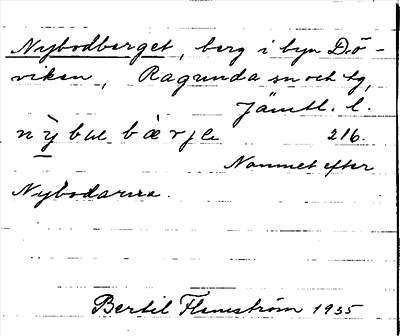 Nybodberget, berg i byn Dö-
viken, Ragunda sn och tg,
Jämtl. l.
216.
Namnet efter
Nybodarna.
Bertil Flemström 1935